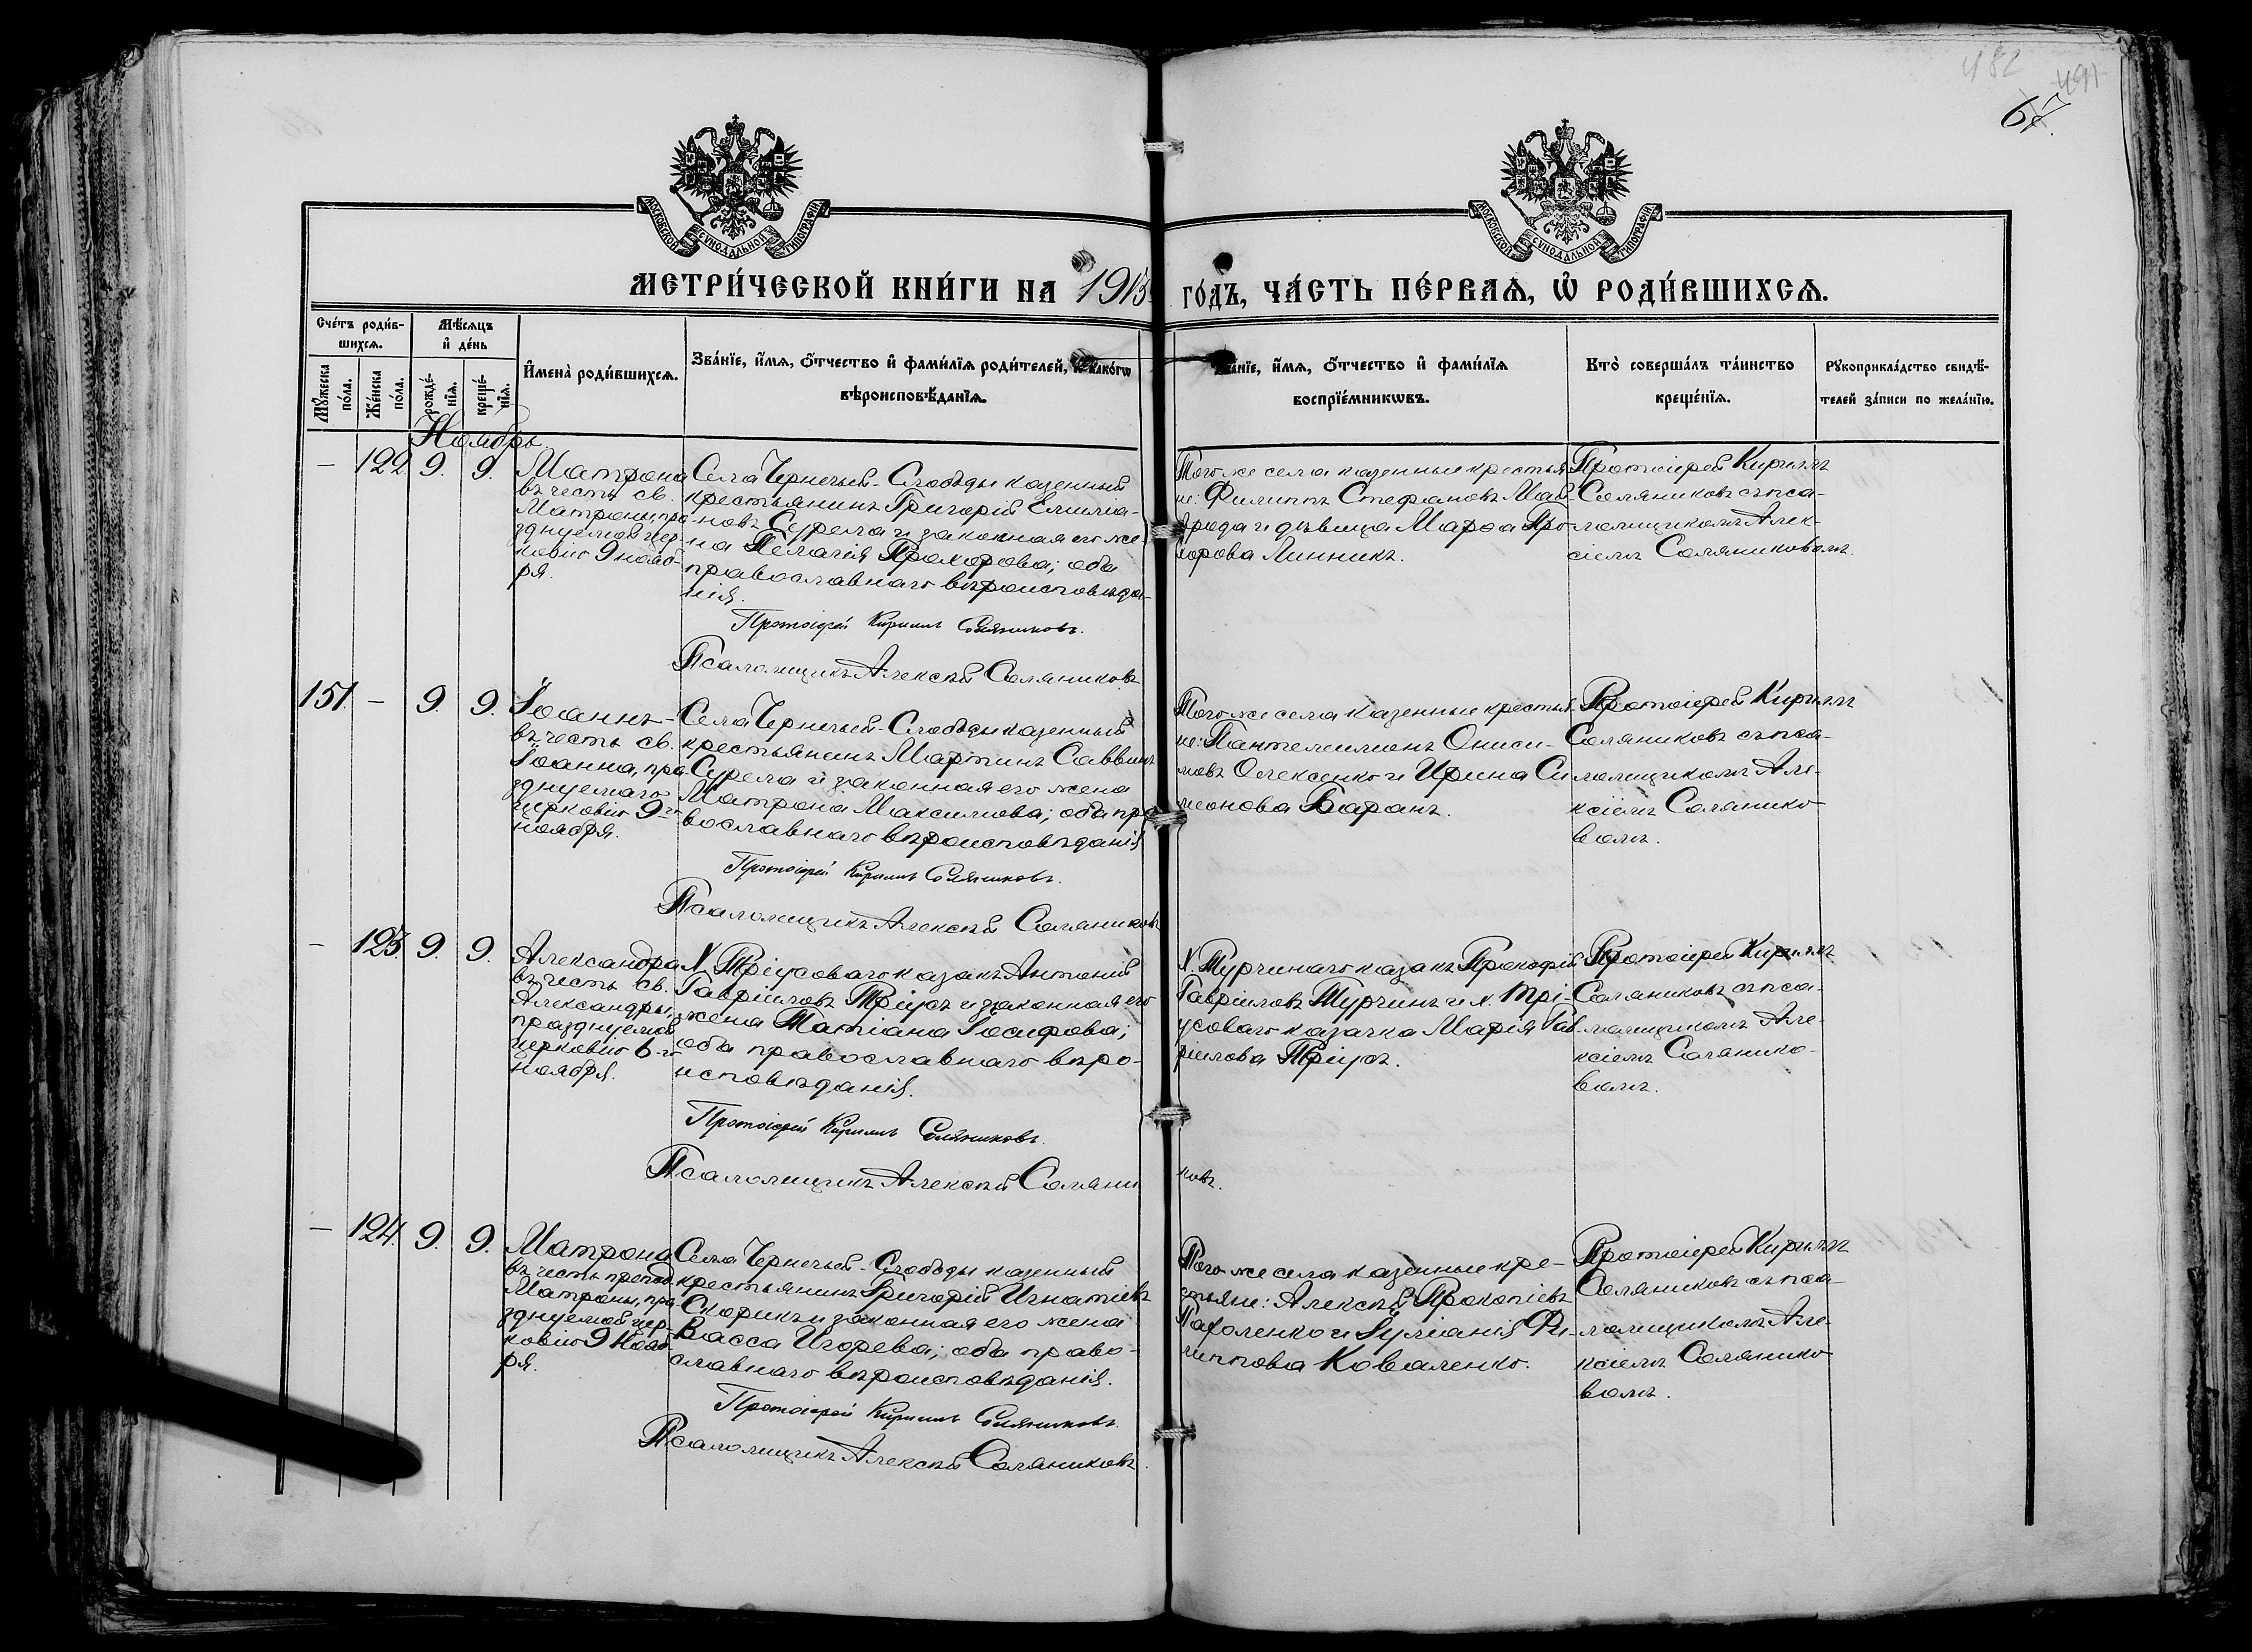 482
491
67.
МОСКОВСКОЙ СУНОДАЛЬНОЙ ТИПОГРАФІИ
МОСКОВСКОЙ СУНОДАЛЬНОЙ ТИПОГРАФІИ
МЕТРИ́ЧЕСКОЙ КНИ́ГИ НА 1913 ГО́ДЪ, ЧА́СТЬ ПЕ́РВАѦ, Ѡ҆ РОДИ́ВШИХСѦ.
Сче́тъ роди́в-
шихсѧ.
Мѣ́сѧцъ
и҆ де́нь
Мꙋ́жеска
по́ла.
Же́нска
по́ла.
рожде́-
нїѧ.
креще́-
нїѧ.
И҆мена̀ роди́вшихсѧ.
Зва́нїе, и҆́мѧ, ѻ҆́тчество и҆ фами́лїѧ роди́телей, и҆ како́гѡ
вѣроисповѣ́данїѧ.
Зва́нїе, и҆́мѧ, ѻ҆́тчество и҆ фами́лїѧ
воспрїе́мникѡвъ.
Кто̀ соверша́лъ та́инство
креще́нїѧ.
Рꙋкоприкла́дство свидѣ́-
телей за́писи по жела́нїю.
Ноябрь
– 122. 9. 9.
Матрона
въ честь св.
Матроны, пра-
зднуемой цер-
ковію 9 нояб-
ря.
Села Чернечьей-Слободы казенный
крестьянинъ Григорій Емилiа-
новъ Сурела и законная его же-
на Пелагія Прохорова; оба
православнаго вѣроисповѣда-
нія.
Протоіерей Кириллъ Соляниковъ.
Псаломщикъ Алексѣй Соляниковъ
Того же села казенные крестья-
не: Филиппъ Стефановъ
и дѣвица Марѳа Про-
хорова Линникъ.
Протоіерей Кириллъ
Соляниковъ съ пса-
ломщикомъ Алек-
сіемъ Соляниковымъ.
151. – 9. 9.
Іоаннъ –
въ честь св.
Іоанна, пра-
зднуемаго
церковію 9-го
ноября.
Села Чернечьей-Слободы казенный
крестьянинъ Мартинъ Саввинъ
Сурела и законная его жена
Матрона Максимова; оба пра-
вославнаго вѣроисповѣданія
Протоіерей Кириллъ Соляниковъ.
Псаломщикъ Алексѣй Соляниковъ
Того же села казенные крестья-
не: Пантелеимонъ Ониси-
мовъ Олексенко и Ирина Си-
меонова Баранъ.
Протоіерей Кириллъ
Соляниковъ съ пса-
ломщикомъ Але-
ксіемъ Солянико-
вымъ.
– 123. 9. 9.
Александра
въ честь св.
Александры,
празднуемой
церковію 6-го
ноября.
х. Тріусоваго казакъ Антоній
Гавріиловъ Тріусъ и законная его
жена Татіана Іосифова;
оба православнаго вѣро-
исповѣданія.
Протоіерей Кириллъ Соляниковъ.
Псаломщикъ Алексѣй Соляни
ковъ.
х. Турчинаго казакъ Прокофій
Гавріиловъ Турчинъ и х. Трі-
усоваго казачка Марія Гав-
ріилова Тріусъ.
Протоіерей Кириллъ
Соляниковъ съ пса-
ломщикомъ Але-
ксіемъ Солянико-
вымъ.
– 124. 9. 9.
Матрона
въ честь препод.
Матроны, пра-
зднуемой цер-
ковію 9 Нояб-
ря.
Села Чернечьей-Слободы казенный
крестьянинъ Григорій Игнатіевъ
Скорикъ и законная его жена
Васса Игорева; оба право-
славнаго вѣроисповѣданія.
Протоіерей Кириллъ Соляниковъ.
Псаломщикъ Алексѣй Соляниковъ.
Того же села казенные кре-
стьяне: Алексѣй Прокопіевъ
Пахоленко и Іуліанія Фи-
липпова Коваленко.
Протоіерей Кириллъ
Соляниковъ съ пса-
ломщикомъ Але-
ксіемъ Солянико-
вымъ.